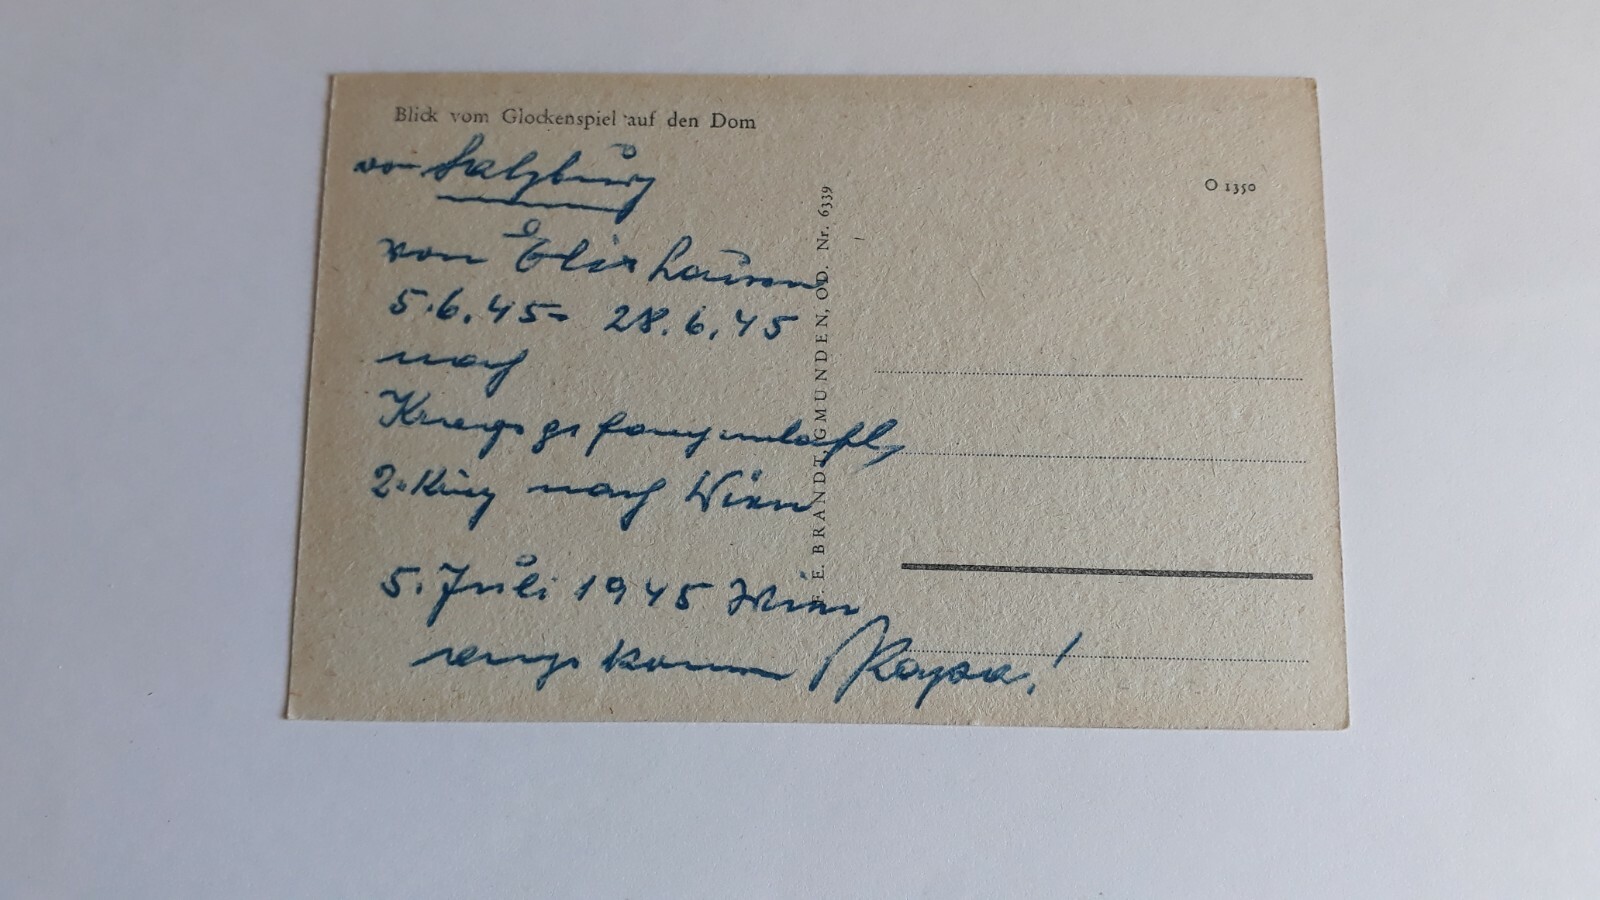 Blick vom Glockenspiel auf den Dom
von Salzburg
O 1350
von Elixhausen
5.6.45 - 28.6.45
nach
Kriegsgefangenschaft,
nach Wien
5. Juli 1945 Wien
Papa!
F. E. BRANDT, GMUNDEN, OD. Nr. 6339